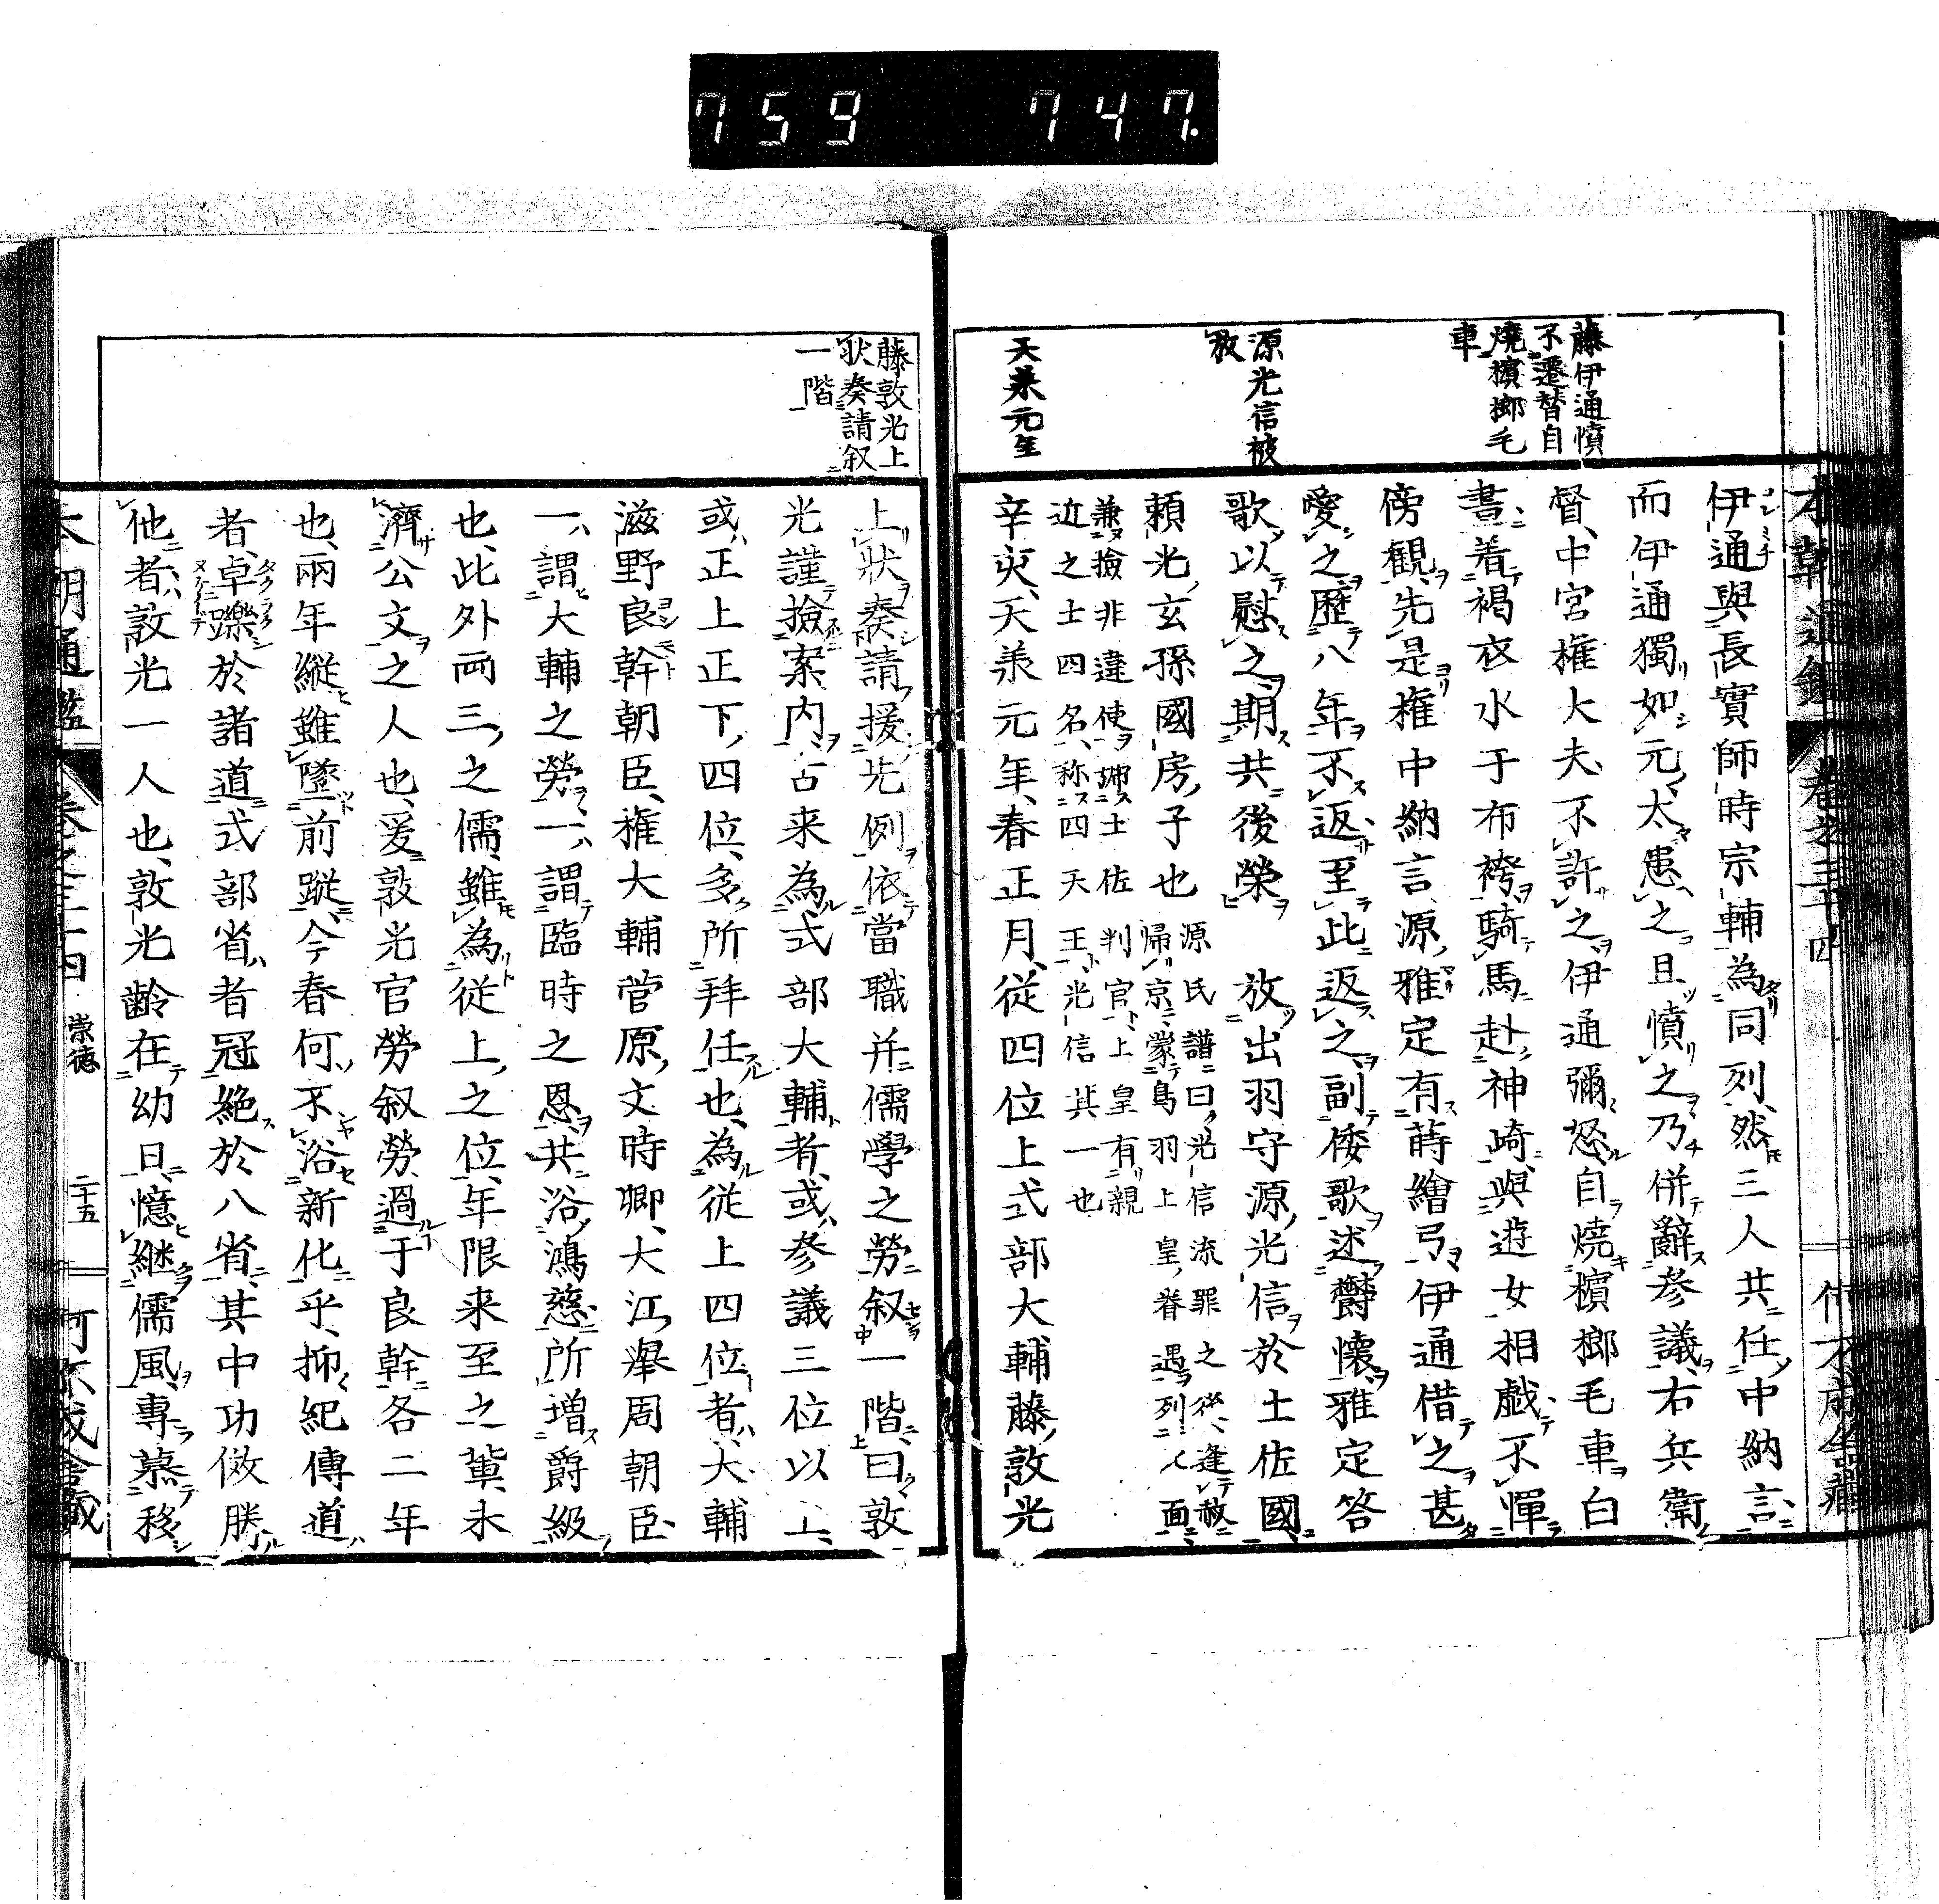 759 747.
藤伊通憤
不遷替自
燒檳榔毛
車
源光信被
放
天承元年
伊通與長實師時宗輔為同列然三人共任中納言
而伊通獨如元太恚之且憤之乃併辭參議右兵衛
督中宮權大夫不許之伊通彌怒自燒檳榔毛車白
晝着褐衣水于布袴騎馬赴神崎與遊女相戲不憚
傍觀先是權中納言源雅定有蒔繪弓伊通借之甚
愛之歷八年不返至此返之副倭歌述欝懷雅定答
歌以慰之期共後榮 放出羽守源光信於土佐國
賴光玄孫國房子也
源氏譜曰光信流罪之後逢赦
帰京蒙鳥羽上皇眷遇列
兼撿非違使號土佐判官上皇有親
近之士四名称四天王光信其一也
辛亥天承元年春正月從四位上式部大輔藤敦光
藤敦光上
狀奏請叙
一階
上狀奏請援先例依當職并儒學之勞叙一階曰敦
光謹撿案内古来為式部大輔者或參議三位以上
或正上正下四位多所拜任也為從上四位者大輔
滋野良幹朝臣權大輔菅原文時卿大江舉周朝臣
一謂大輔之勞一謂臨時之恩共浴鴻慈所增爵級
也此外兩三之儒雖為從上之位年限来至之輩未
濟公文之人也爰敦光官勞叙勞過于良幹各二年
也兩年縱雖墜前蹤今春何不浴新化乎抑紀傳道
者卓躒於諸道式部省者冠絶於八省其中功效勝
他者敦光一人也敦光齡在幼日憶継儒風專慕移
本朝通鑑 卷之三十四 崇德 二十五